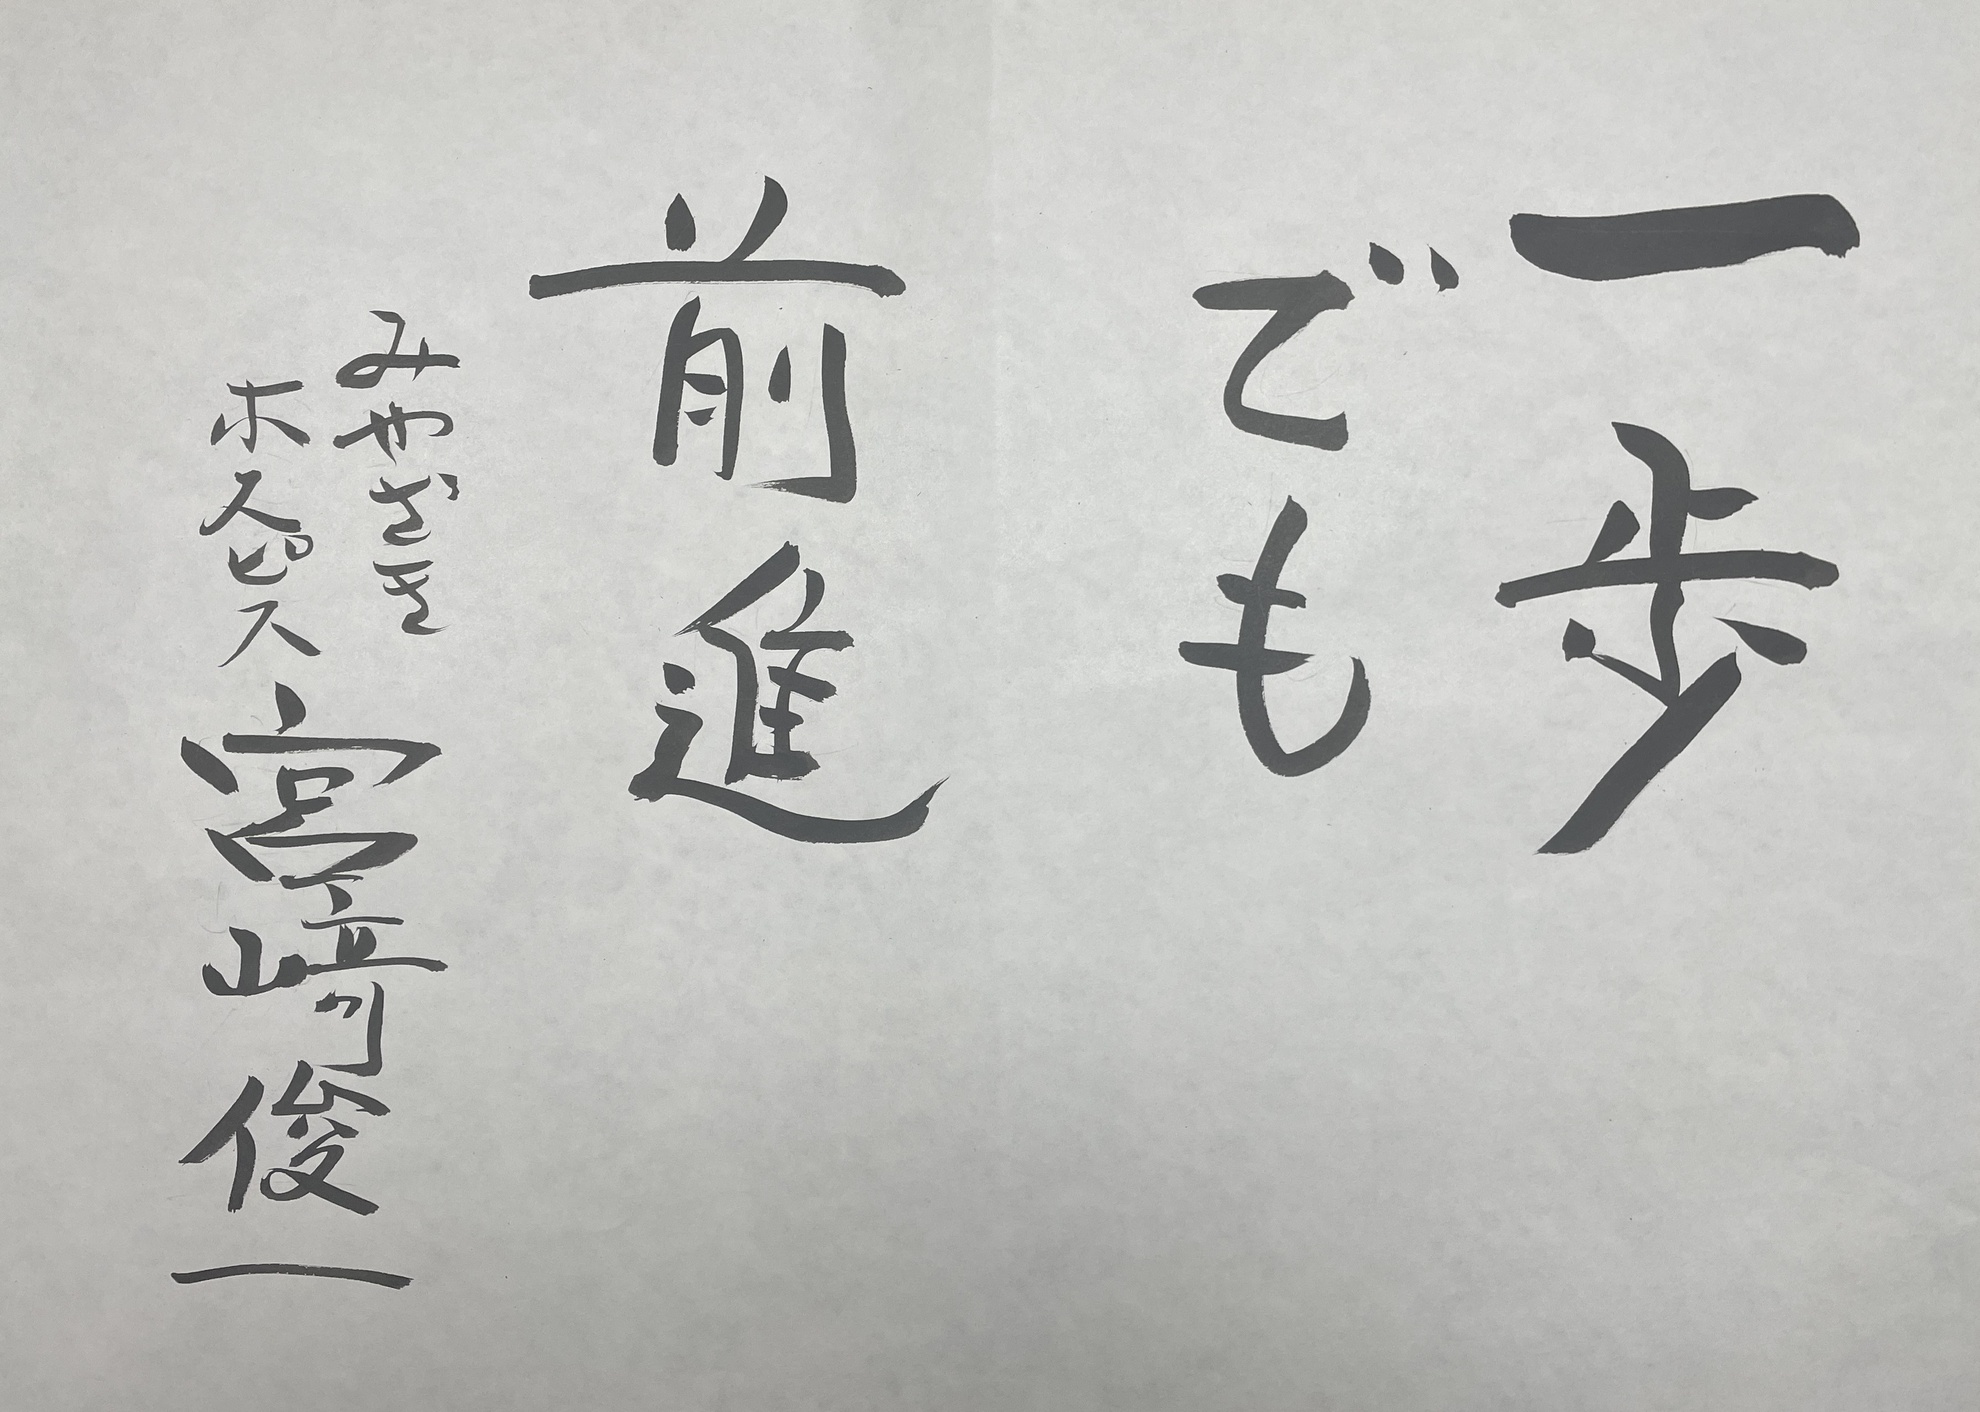 一歩
でも
前進
みやざき
ホスピス
宮崎俊一